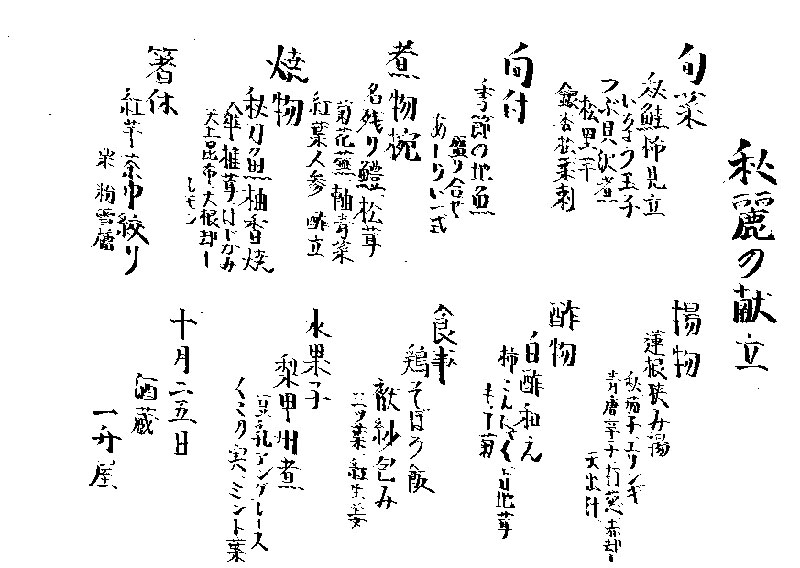 秋麗の献立
旬菜
秋鮭柿見立
いくら
玉子
つぶ貝沢煮
松風
銀杏松葉刺
向付
季節の地魚
盛り合せ
あしらい一式
煮物椀
名残り鱧松茸
菊花蕪 軸青菜
紅葉人参 酢立
焼物
秋刀魚柚香焼
傘椎茸はじかみ
天上昆布大根卸し
レモン
箸休
紅芋茶巾絞り
米粉雪
揚物
蓮根狭み揚
秋茄子エリンギ
青唐辛子
赤卸し
天出汁
酢物
白酢和え
柿こんにゃく占地茸
もって菊
食事
鶏そぼろ飯
献紗包み
三ツ葉 紅生姜
水果子
梨甲州煮
豆乳アングレース
くこの実 ミント葉
十月二五日
酒蔵
一舟屋